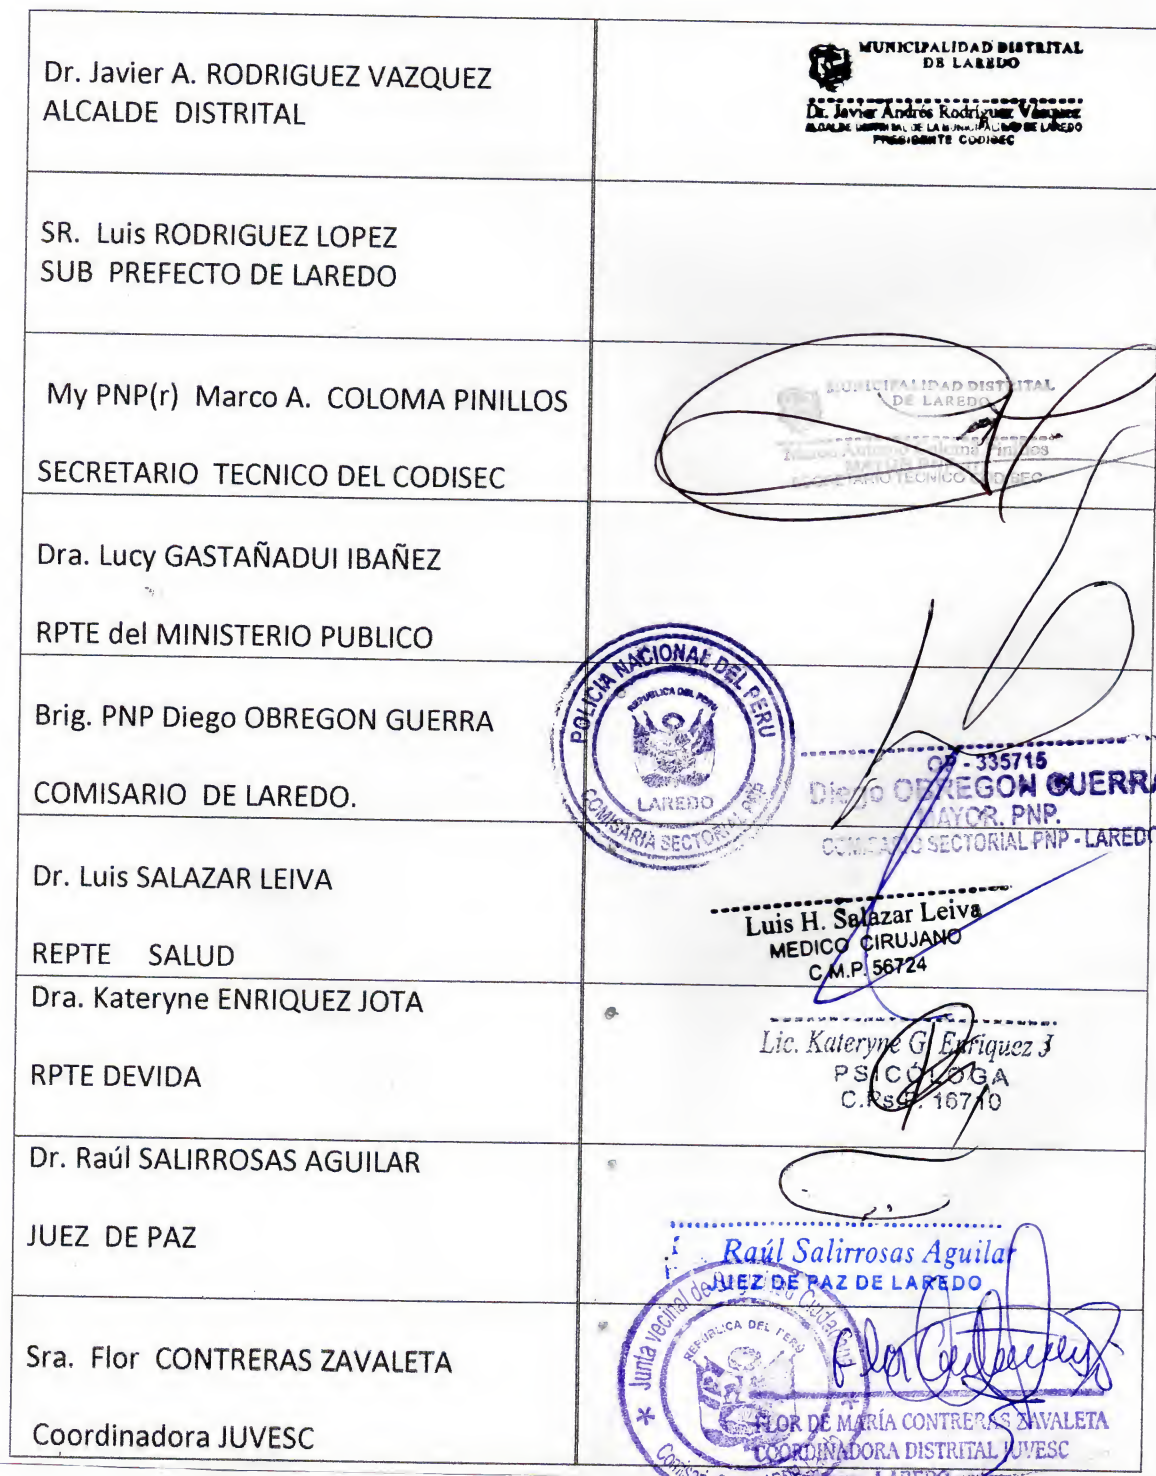 Dr. Javier A. RODRIGUEZ VAZQUEZ
ALCALDE DISTRITAL
MUNICIPALIDAD DISTRITAL
DE LAREDO
Dr. Javier Andrés Rodríguez Vásquez
ALCALDE DISTRITAL DE LA MUNICIPALIDAD DE LAREDO
PRESIDENTE CODISEC
SR. Luis RODRIGUEZ LOPEZ
SUB PREFECTO DE LAREDO
My PNP(r) Marco A. COLOMA PINILLOS
SECRETARIO TECNICO DEL CODISEC
MUNICIPALIDAD DISTRITAL
DE LAREDO
Marco Antonio Coloma Pinillos
SECRETARIO TECNICO CODISEC
Dra. Lucy GASTAÑADUI IBAÑEZ
RPTE del MINISTERIO PUBLICO
Brig. PNP Diego OBREGON GUERRA
COMISARIO DE LAREDO.
POLICIA NACIONAL DEL PERU
REPUBLICA DEL PERU
LAREDO
COMISARIA SECTORIAL PNP
OP - 335715
Diego OBREGON GUERRA
MAYOR. PNP.
COMISARIO SECTORIAL PNP - LAREDO
Dr. Luis SALAZAR LEIVA
REPTE SALUD
Luis H. Salazar Leiva
MEDICO CIRUJANO
C.M.P. 56724
Dra. Kateryne ENRIQUEZ JOTA
RPTE DEVIDA
Lic. Kateryne G. Enriquez J
PSICÓLOGA
C.Ps.P. 16710
Dr. Raúl SALIRROSAS AGUILAR
JUEZ DE PAZ
Raúl Salirrosas Aguilar
JUEZ DE PAZ DE LAREDO
Sra. Flor CONTRERAS ZAVALETA
Coordinadora JUVESC
Junta Vecinal de Seguridad Ciudadana
REPUBLICA DEL PERU
FLOR DE MARÍA CONTRERAS ZAVALETA
COORDINADORA DISTRITAL JUVESC
LAREDO